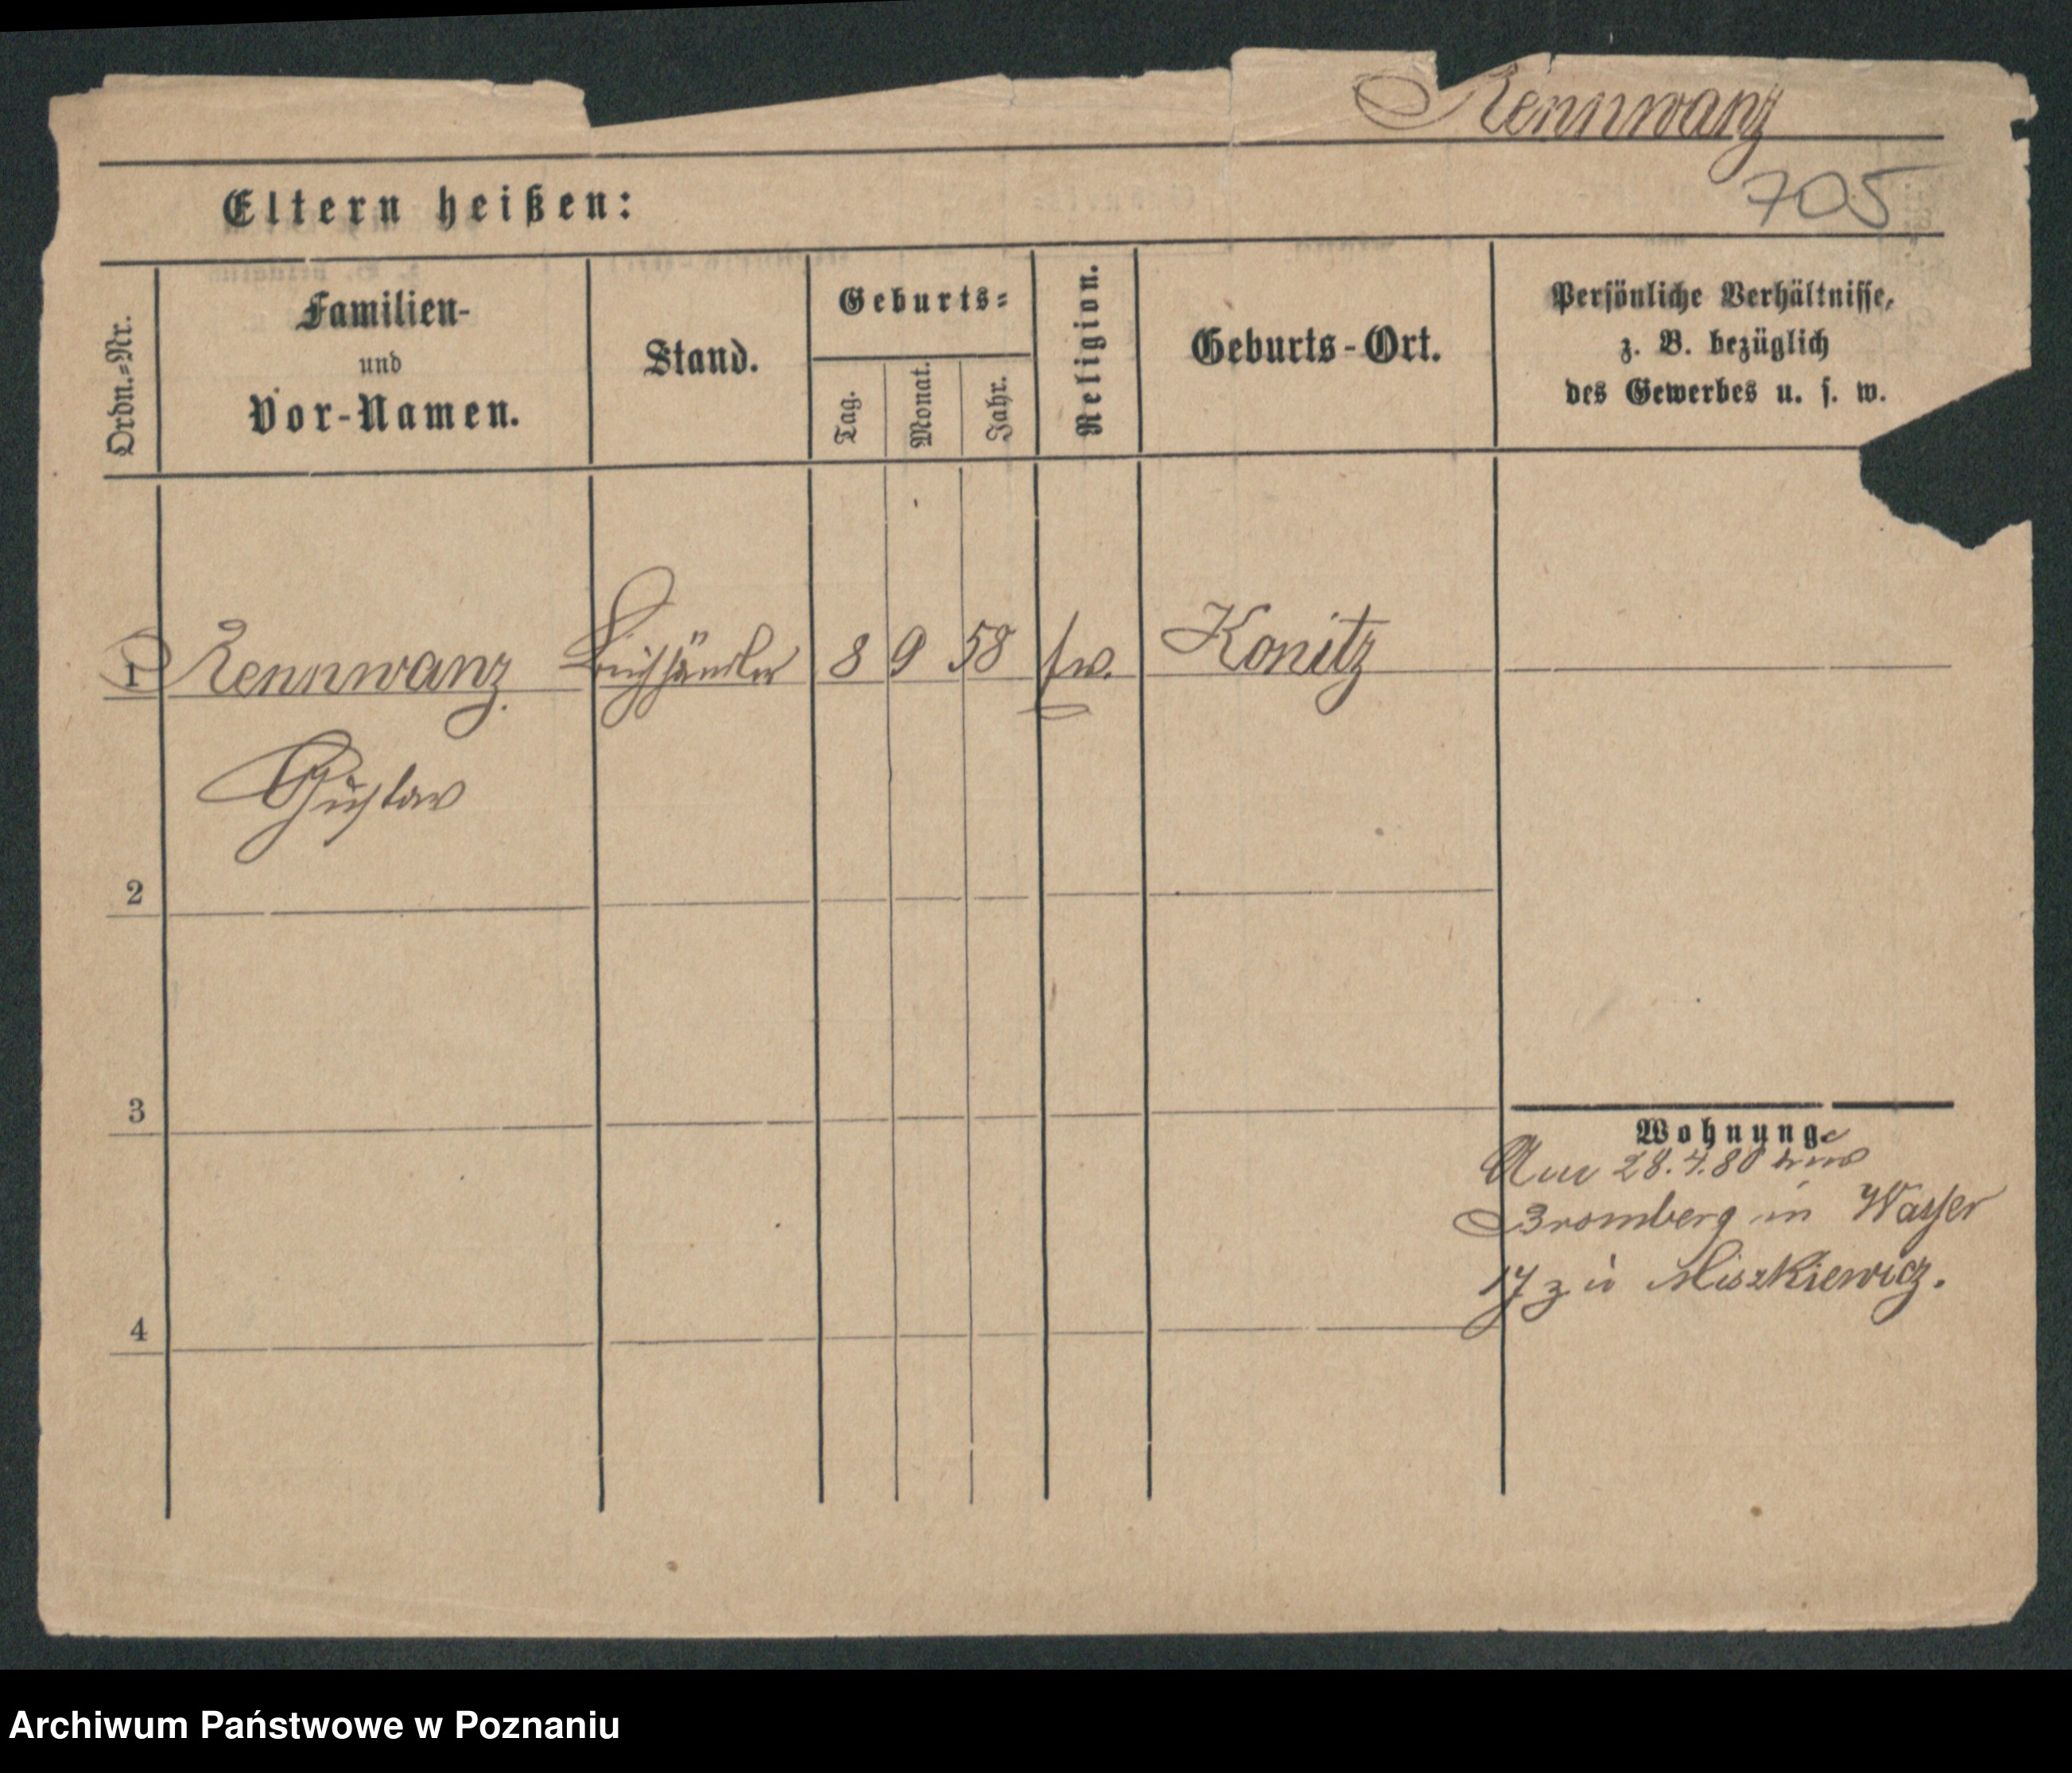 Rennwanz
705
Eltern heißen:
Ordn.=Nr.
Familien-
und
Vor-Namen.
Stand.
Geburts=
Tag.
Monat.
Jahr.
Religion.
Geburts-Ort.
Persönliche Verhältnisse,
z. B. bezüglich
des Gewerbes u. s. w.
1 Rennwanz 8 9 58 Konitz
Gustav
2
3
4
Wohnung.
28.4.80 aus
Bromberg in Wasser
17 zu Miszkiewicz.
Archiwum Państwowe w Poznaniu